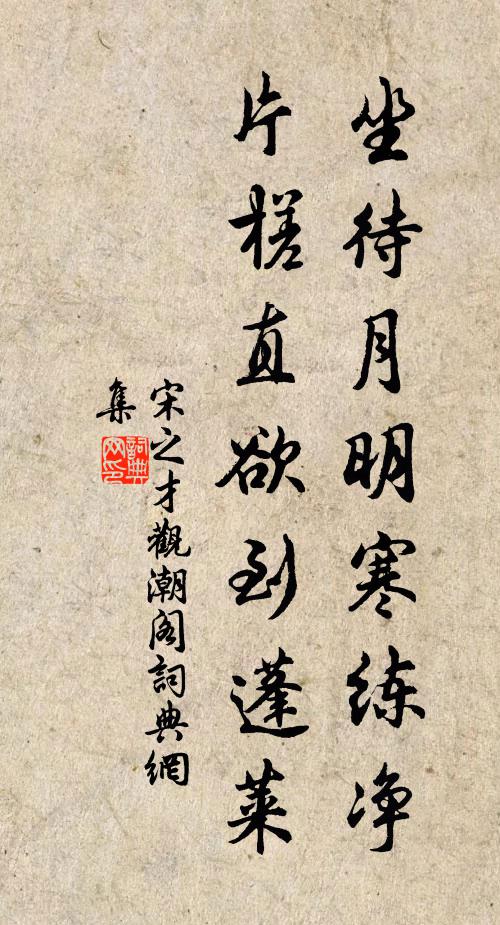 坐待月明寒练净
片槎直欲到蓬莱
宋之才觀潮阁詞典網
集
詞典网印